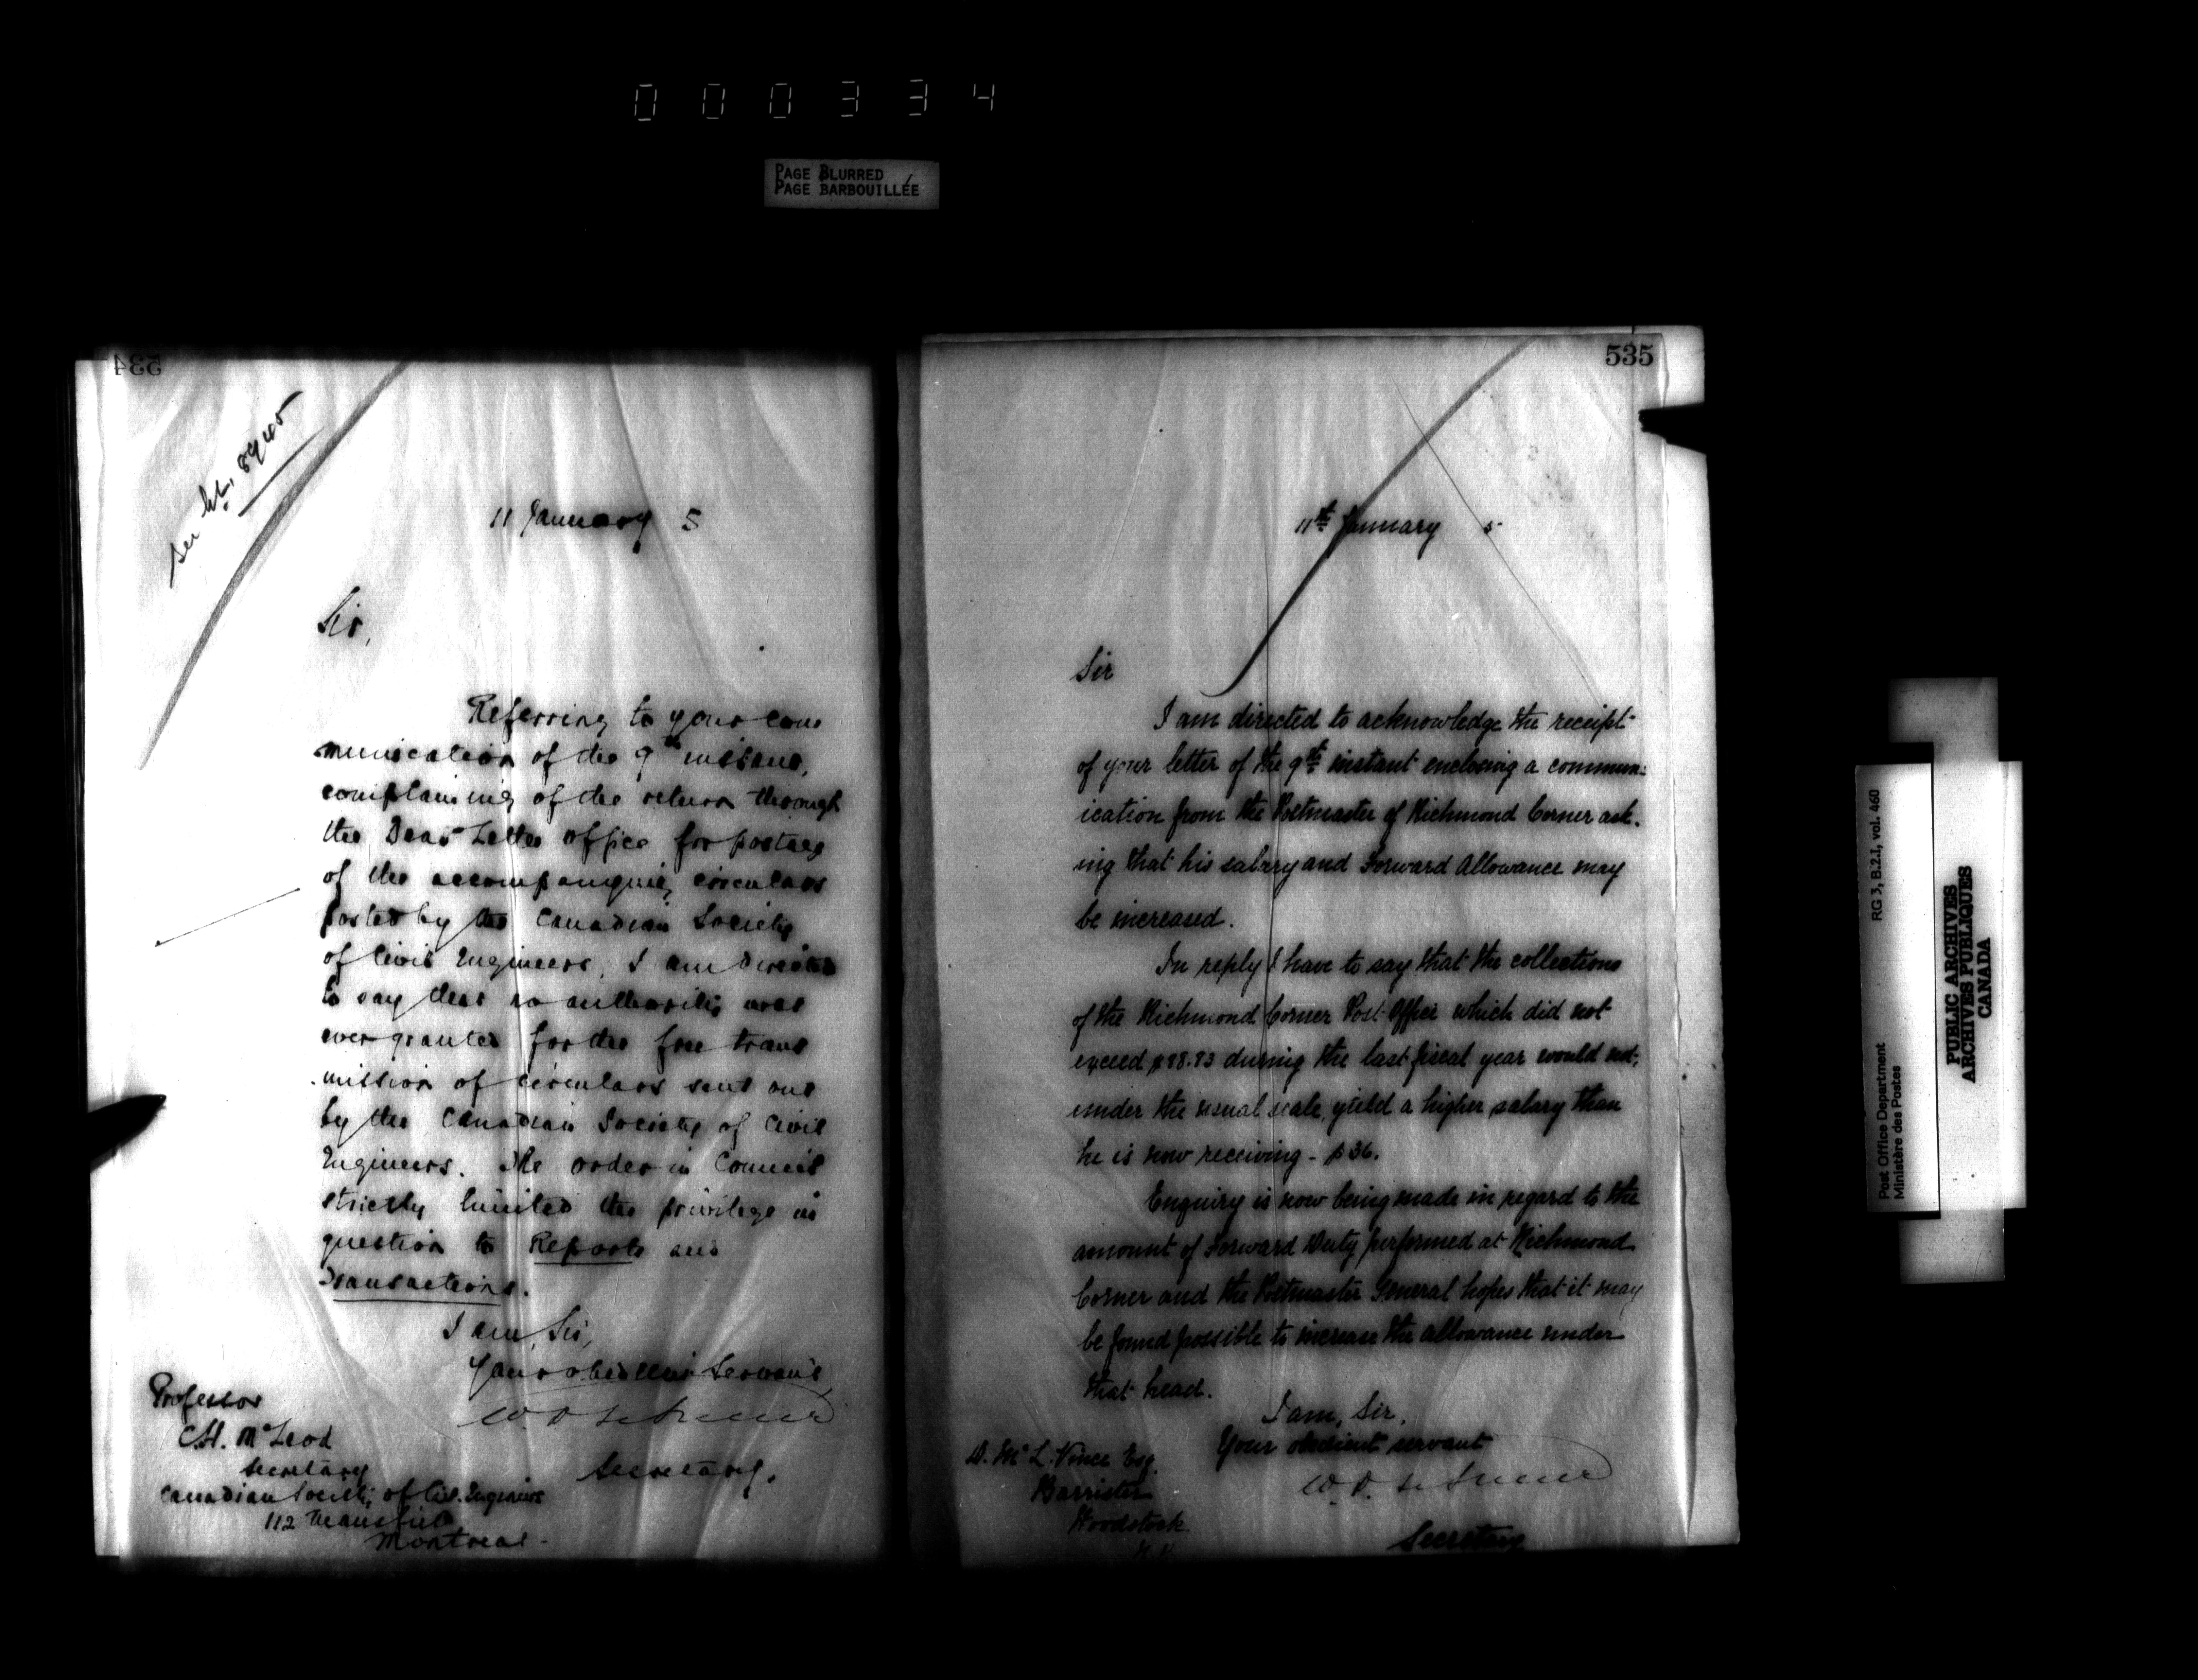 000334
PAGE BLURRED
PAGE BARBOUILLÉE
534
11 January 5
Sir,
Referring to your com
munication of the 9th instant,
complaining of the return through
the Dead Letter office for postage
of the accompanying circulars
posted by the Canadian Society
of Civil Engineers, I am directed
to say that no authority was
ever granted for the free trans
mission of circulars sent out
by the Canadian Society of Civil
Engineers. The order in Council
strictly limited the privilege in
question to Reports and
Transactions.
I am, Sir,
Your obedient Servant,
Secretary.
Professor
C.H. McLeod
Secretary
Canadian Society of Civ. Engineers
112 Mansfield
Montreal -
535
11th January 5
Sir
I am directed to acknowledge the receipt
of your letter of the 9th instant enclosing a commun=
ication from the Postmaster of Richmond Corner ask-
ing that his salary and Forward Allowance may
be increased.
In reply I have to say that the collections
of the Richmond Corner Post Office which did not
exceed $88.83 during the last fiscal year would not,
under the usual scale, yield a higher salary than
he is now receiving - $36.
Enquiry is now being made in regard to the
amount of Forward Duty performed at Richmond
Corner and the Postmaster General hopes that it may
be found possible to increase the allowance under
that head.
I am, Sir,
Your obedient servant
Secretary
D. McL. Vince Esq.
Barrister
Woodstock.
Post Office Department
Ministère des Postes
RG 3, B.2.I, vol. 460
PUBLIC ARCHIVES
ARCHIVES PUBLIQUES
CANADA